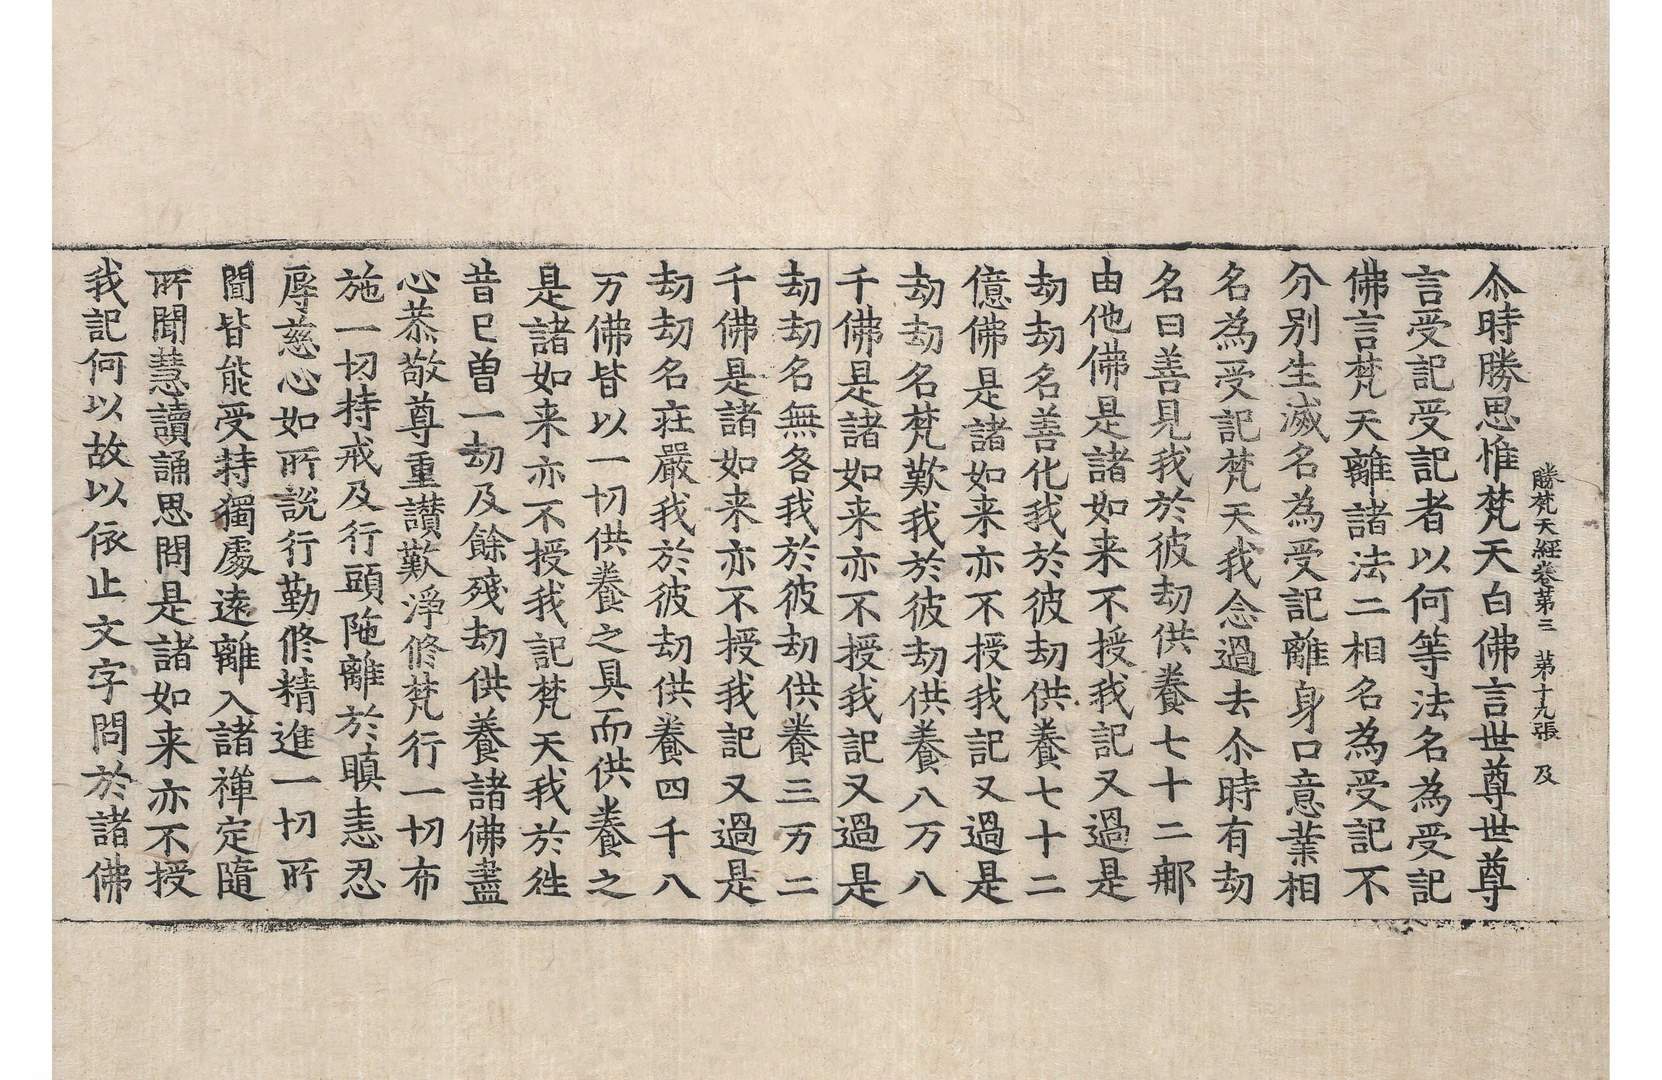 勝梵天經卷第三　第十九張　及
尒時勝思惟梵天白佛言世尊世尊
言受記受記者以何等法名為受記
佛言梵天離諸法二相名為受記不
分别生滅名為受記離身口意業相
名為受記梵天我念過去尒時有劫
名曰善見我於彼劫供養七十二那
由他佛是諸如来不授我記又過是
劫劫名善化我於彼劫供養七十二
億佛是諸如来亦不授我記又過是
劫劫名梵歎我於彼劫供養八万八
千佛是諸如来亦不授我記又過是
劫劫名無咎我於彼劫供養三万二
千佛是諸如来亦不授我記又過是
劫劫名莊嚴我於彼劫供養四千八
万佛皆以一切供養之具而供養之
是諸如来亦不授我記梵天我於往
昔已曾一劫及餘殘劫供養諸佛盡
心恭敬尊重讃歎淨修梵行一切布
施一切持戒及行頭陁離於瞋恚忍
辱慈心如所說行勤修精進一切所
聞皆能受持獨處遠離入諸禪定隨
所聞慧讀誦思問是諸如来亦不授
我記何以故以依止文字問於諸佛